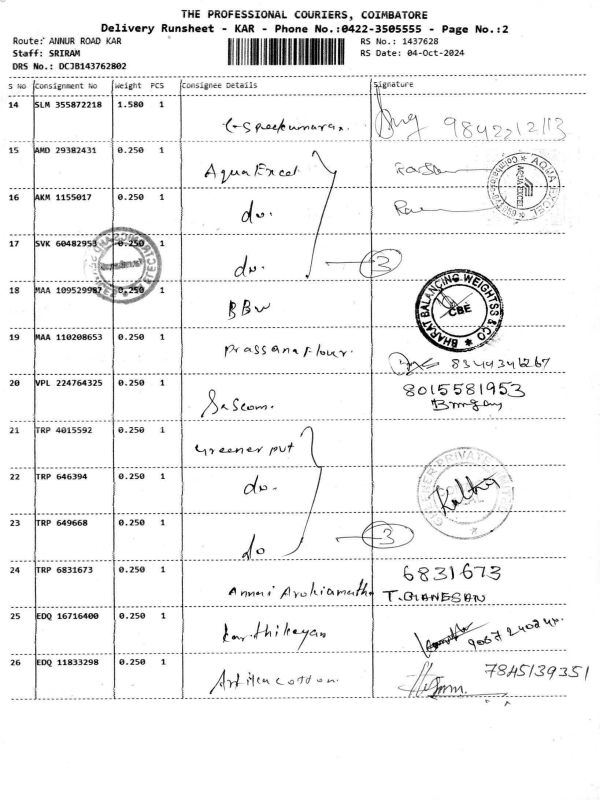 THE PROFESSIONAL COURIERS, COIMBATORE
Delivery Runsheet - KAR - Phone No.:0422-3505555 - Page No.:2
Route: ANNUR ROAD KAR
RS No.: 1437628
Staff: SRIRAM
RS Date: 04-Oct-2024
DRS No.: DCJB143762802
S No Consignment No Weight PCS Consignee Details Signature
14 SLM 355872218 1.580 1
9842212113
15 AMD 29382431 0.250 1 Aqua Excel
AQUA EXCEL
16 AKM 1155017 0.250 1 do.
17 SVK 60482953 0.250 1 do. 3
18 MAA 109529987 0.250 1 BBW
BHARAT BALANCING WEIGHTSS & CO
CBE
19 MAA 110208653 0.250 1 Prassana Flour.
8344341267
20 VPL 224764325 0.250 1 SaScom.
8015581953
21 TRP 4015592 0.250 1 Greener pvt
22 TRP 646394 0.250 1 do.
23 TRP 649668 0.250 1 do 3
24 TRP 6831673 0.250 1 Annai Arokiamatha
6831673
T. GANESAN
25 EDQ 16716400 0.250 1 Karthikeyan
26 EDQ 11833298 0.250 1
7845139351